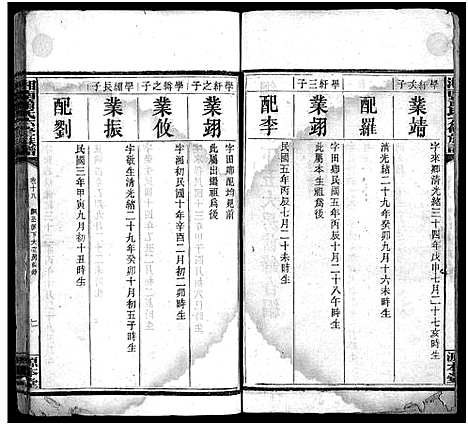 學軒次子
業靖
字來鄉清光緒三十四年戊申七月二十七亥時生
配羅
清光緒二十九年癸卯九月十六未時生
學軒三子
業翊
字田鄉民國五年丙辰二月二十八午時生
此屬本生雍為後
配李
民國五年丙辰七月二十未時生
學之子
業翊
字田鄉配均見前
此屬出繼雍為後
學輯之子
業攸
字濕初民國十年辛酉二月初二卯時生
學緝長子
業振
字敬生清光緒二十九年癸卯十月初五子時生
配劉
民國三年甲寅九月初十丑時生
卷十九
七
源本堂
源本堂